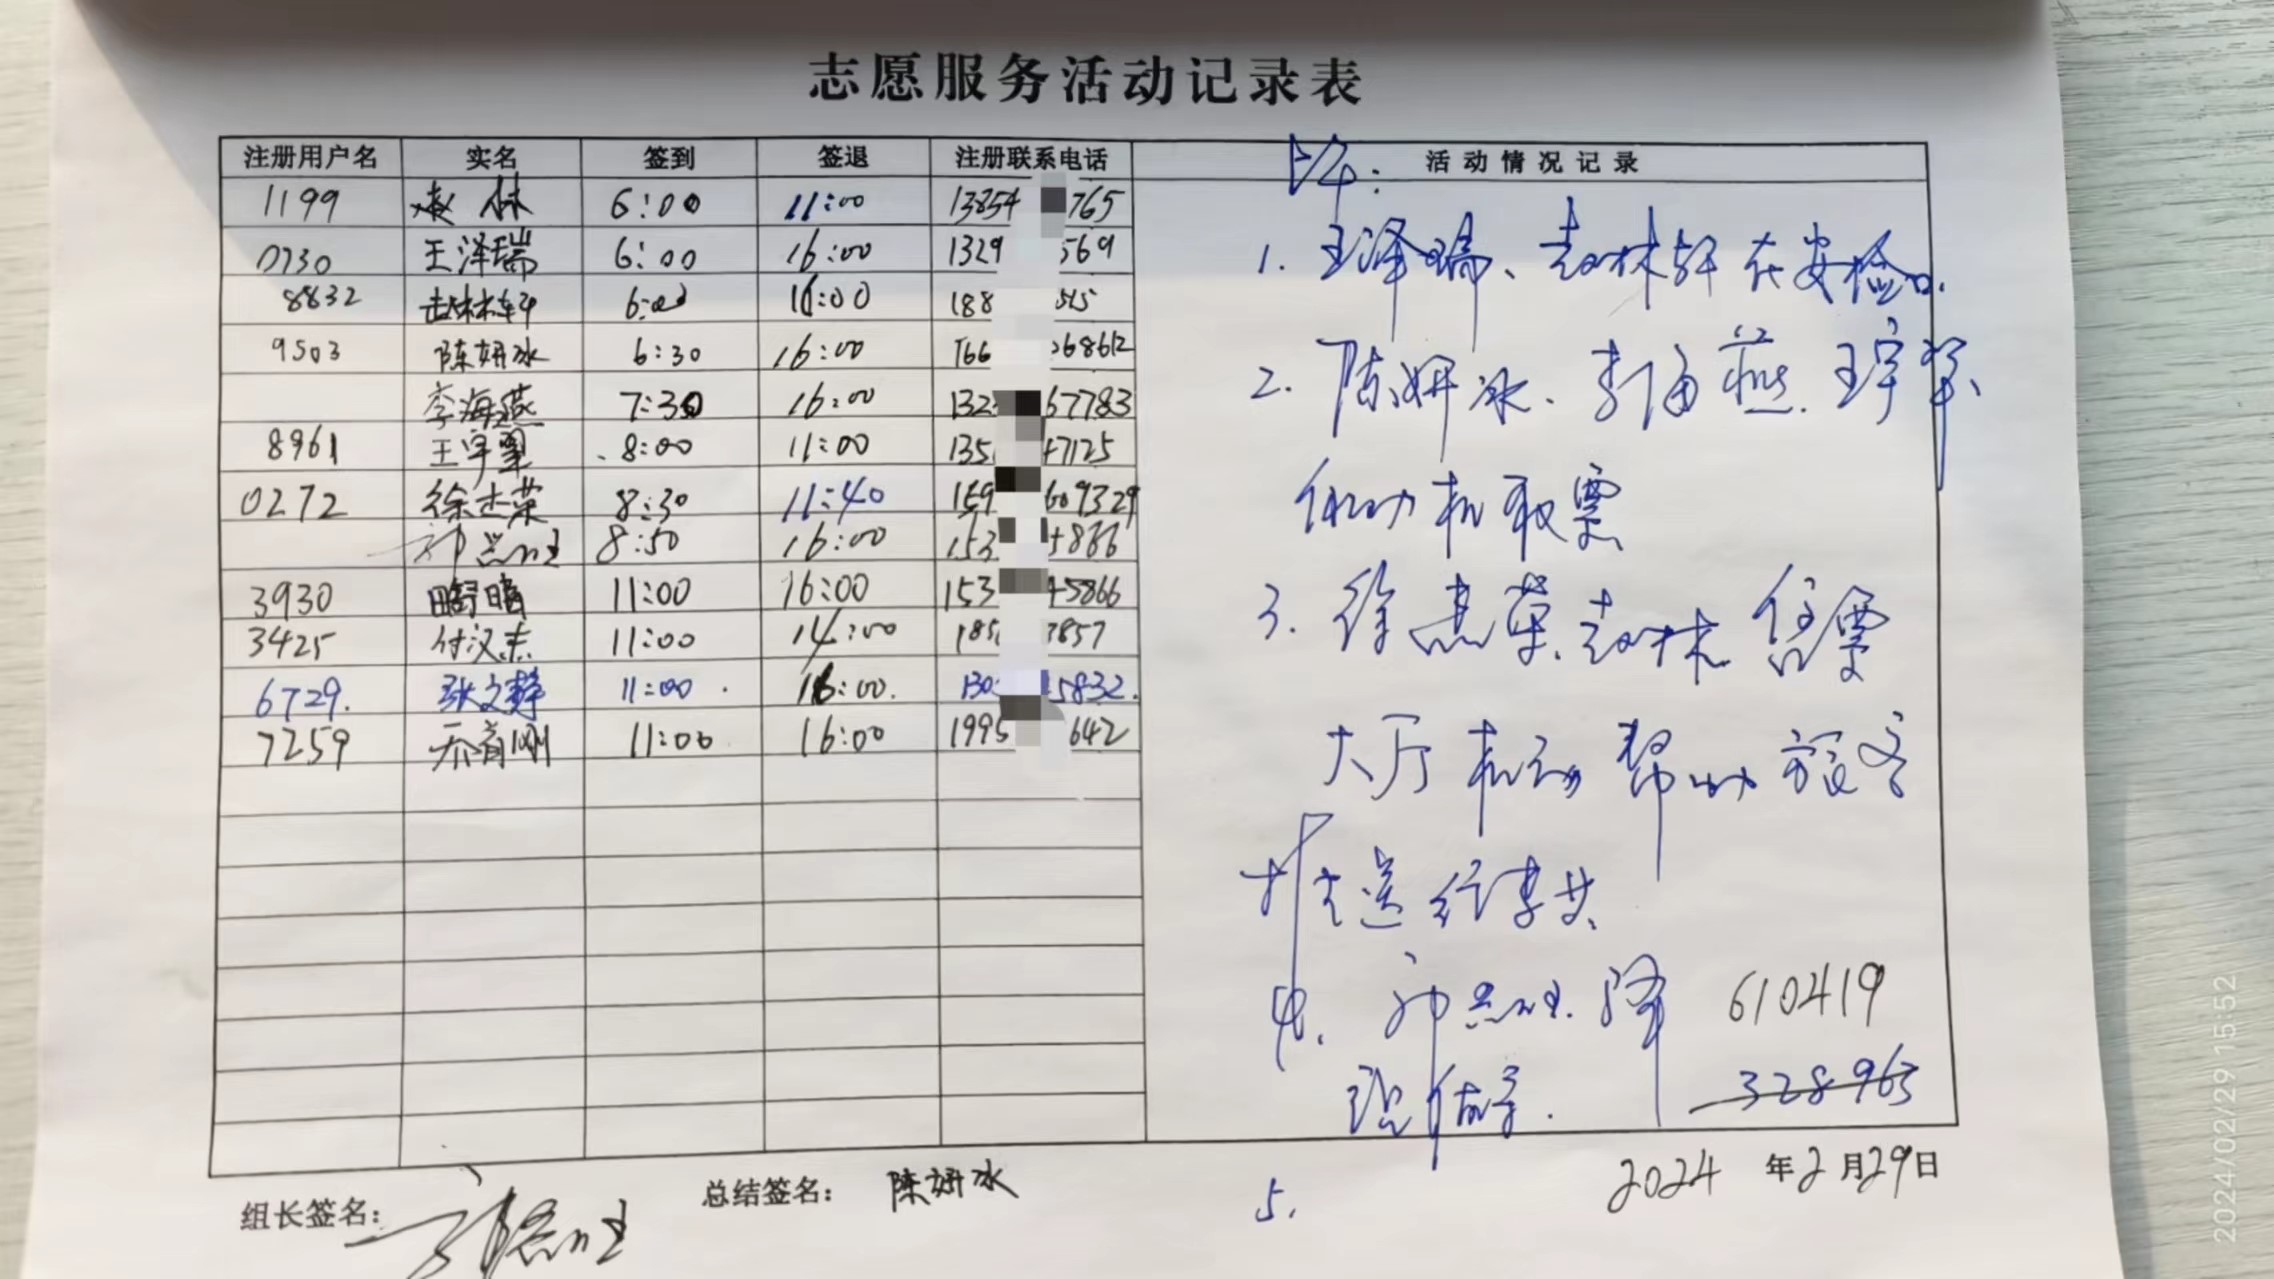 志愿服务活动记录表
注册用户名 实名 签到 签退 注册联系电话 活动情况记录
1199 赵林 6:00 11:00 13854 765
0730 王泽瑞 6:00 16:00 1329 569
8832 赵林轩 6:00 16:00 188 515
9503 陈妍冰 6:30 16:00 166 68612
李海燕 7:30 16:00 132 67783
8961 王宇翠 8:00 11:00 135 47125
0272 徐杰荣 8:30 11:40 159 609329
8:50 16:00 153 5866
3930 11:00 16:00 153 45866
3425 付汉杰 11:00 14:00 185 3857
6729. 张文静 11:00. 16:00. 130 5832.
7259 乔育刚 11:00 16:00 1995 642
上午:
1. 王泽瑞、赵林轩在安检口.
2. 陈妍冰、李海燕、王宇翠
机取票
3. 徐杰荣、赵林 售票
大厅机动帮助旅客
推送行李其
4.
610419
328963
5.
组长签名:
总结签名: 陈妍冰
2024年2月29日
2024/02/29 15:52